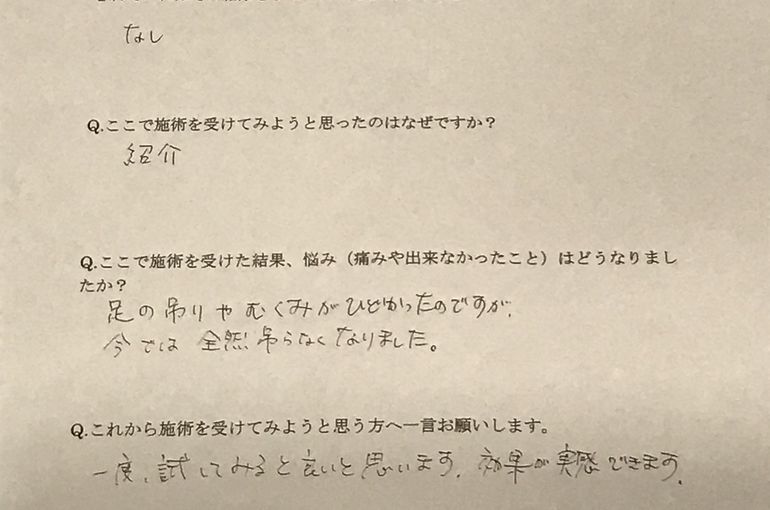 なし
Q.ここで施術を受けてみようと思ったのはなぜですか？
紹介
Q.ここで施術を受けた結果、悩み（痛みや出来なかったこと）はどうなりまし
たか？
足の吊りやむくみがひどかったのですが、
今では全然吊らなくなりました。
Q.これから施術を受けてみようと思う方へ一言お願いします。
一度、試してみると良いと思います。効果が実感できます。